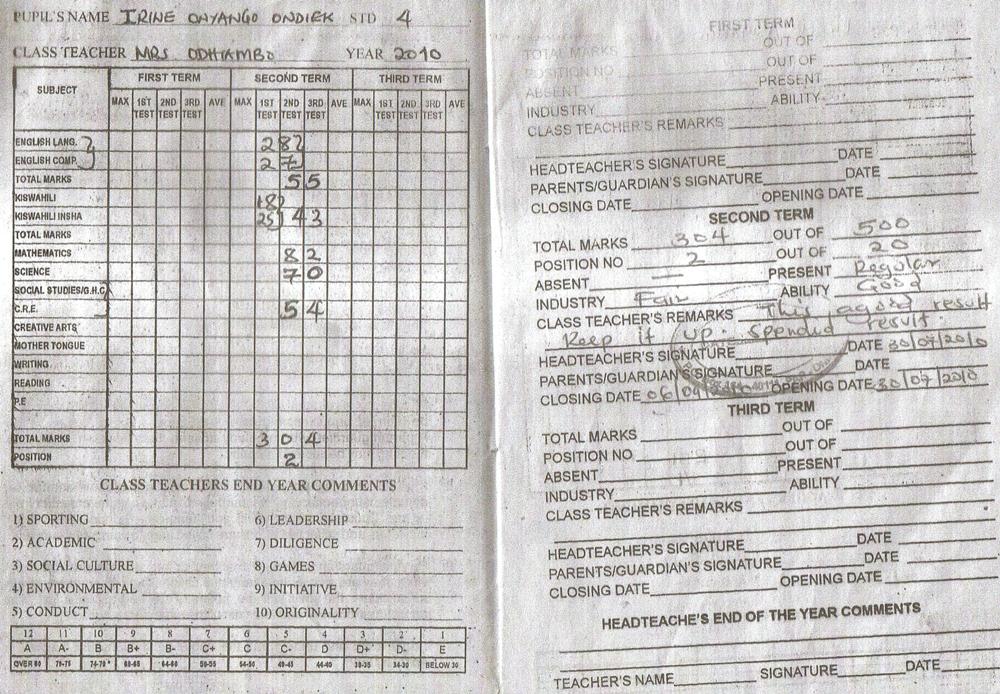 PUPIL'S NAME IRINE ONYANGO ONDIEK STD 4
CLASS TEACHER MRS ODHIAMBO YEAR 2010
SUBJECT FIRST TERM SECOND TERM THIRD TERM
MAX 1ST TEST 2ND TEST 3RD TEST AVE MAX 1ST TEST 2ND TEST 3RD TEST AVE MAX 1ST TEST 2ND TEST 3RD TEST AVE
ENGLISH LANG. 28
ENGLISH COMP. 27
TOTAL MARKS 55
KISWAHILI 18
KISWAHILI INSHA 25 43
TOTAL MARKS
MATHEMATICS 82
SCIENCE 70
SOCIAL STUDIES/G.H.C
C.R.E. 54
CREATIVE ARTS
MOTHER TONGUE
WRITING
READING
P.E
TOTAL MARKS 304
POSITION 2
CLASS TEACHERS END YEAR COMMENTS
1) SPORTING 6) LEADERSHIP
2) ACADEMIC 7) DILIGENCE
3) SOCIAL CULTURE 8) GAMES
4) ENVIRONMENTAL 9) INITIATIVE
5) CONDUCT 10) ORIGINALITY
12 11 10 9 8 7 6 5 4 3 2 1
A A- B B+ B- C+ C C- D D+ D- E
OVER 80 75-75 74-70 65-65 64-60 50-55 54-50 49-45 44-40 38-35 34-30 BELOW 30
FIRST TERM
TOTAL MARKS OUT OF
POSITION NO OUT OF
ABSENT PRESENT
INDUSTRY ABILITY
CLASS TEACHER'S REMARKS
HEADTEACHER'S SIGNATURE DATE
PARENTS/GUARDIAN'S SIGNATURE DATE
CLOSING DATE OPENING DATE
SECOND TERM
TOTAL MARKS 304 OUT OF 500
POSITION NO 2 OUT OF 20
ABSENT — PRESENT Regular
INDUSTRY Fair ABILITY Good
CLASS TEACHER'S REMARKS This agood result
Keep it up. Spended result.
HEADTEACHER'S SIGNATURE DATE 30/07/2010
PARENTS/GUARDIAN'S SIGNATURE DATE
CLOSING DATE 06/09/2010 OPENING DATE 30/07/2010
THIRD TERM
TOTAL MARKS OUT OF
POSITION NO OUT OF
ABSENT PRESENT
INDUSTRY ABILITY
CLASS TEACHER'S REMARKS
HEADTEACHER'S SIGNATURE DATE
PARENTS/GUARDIAN'S SIGNATURE DATE
CLOSING DATE OPENING DATE
HEADTEACHE'S END OF THE YEAR COMMENTS
TEACHER'S NAME SIGNATURE DATE